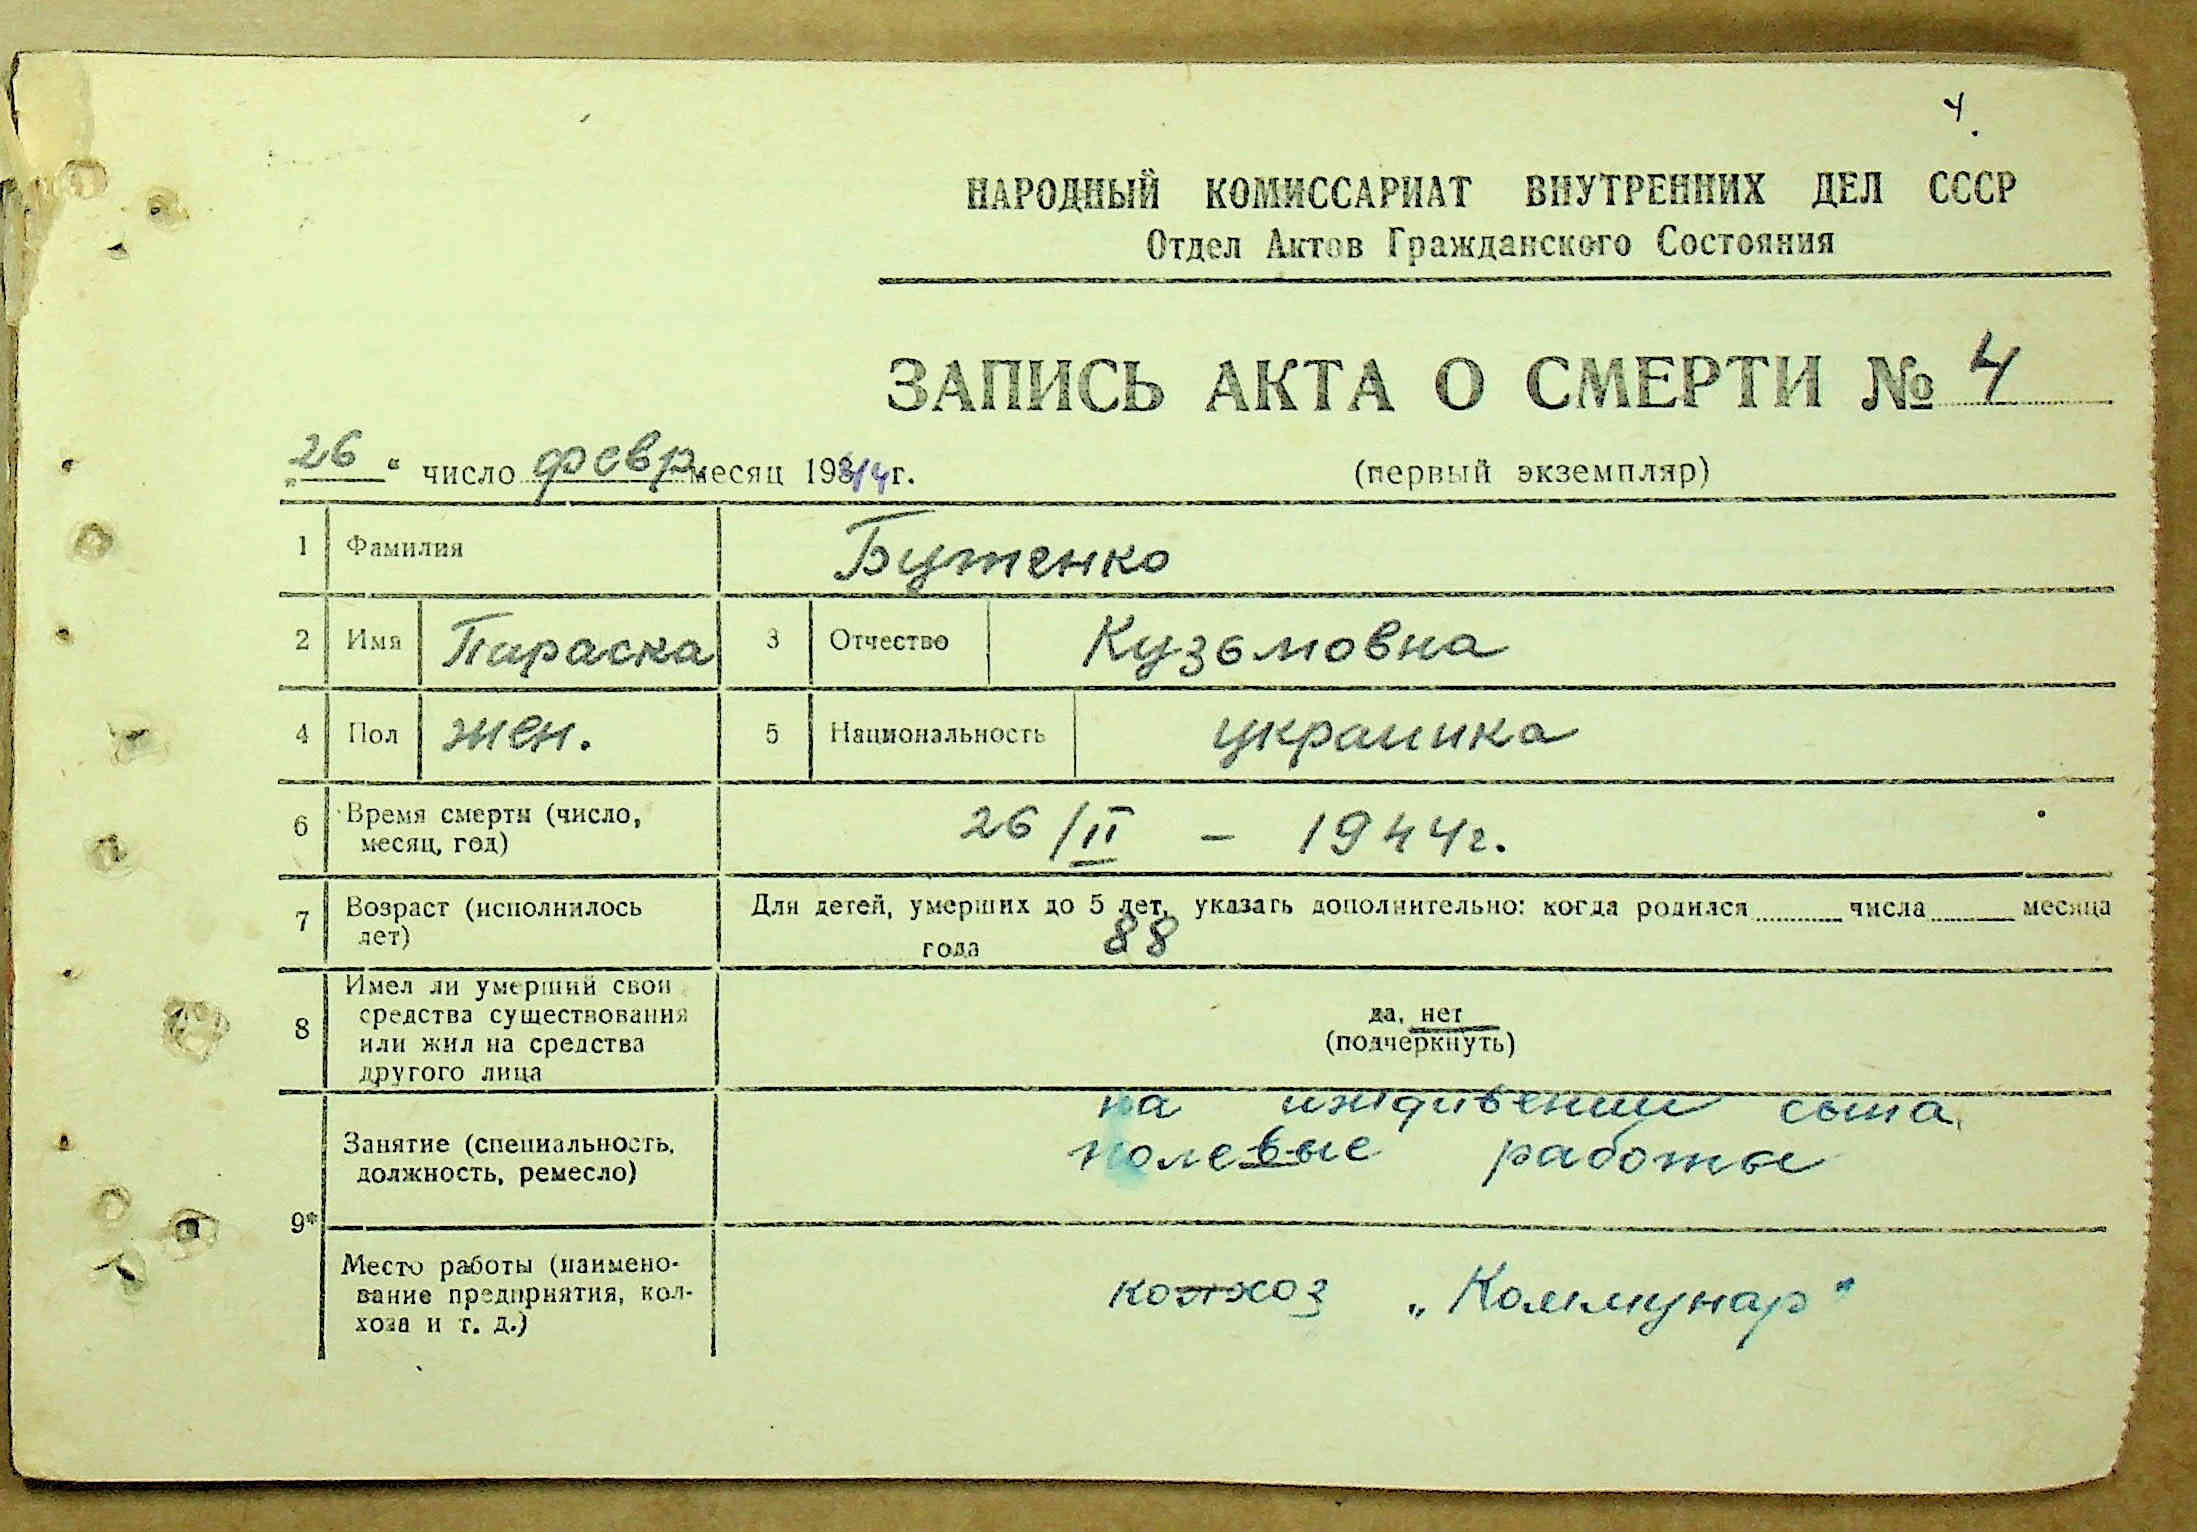 4.
НАРОДНЫЙ КОМИССАРИАТ ВНУТРЕННИХ ДЕЛ СССР
Отдел Актов Гражданского Состояния
ЗАПИСЬ АКТА О СМЕРТИ № 4
„26“ число февр месяц 1944г.
(первый экземпляр)
1 Фамилия Бутенко
2 Имя Параска 3 Отчество Кузьмовна
4 Пол жен. 5 Национальность украинка
6 Время смерти (число, месяц, год) 26/II – 1944г.
7 Возраст (исполнилось лет) Для детей, умерших до 5 лет, указать дополнительно: когда родился числа месяца
года 88
8 Имел ли умерший свои средства существования или жил на средства другого лица да, нет
(подчеркнуть)
на иждивении сына
9* Занятие (специальность, должность, ремесло) полевые работы
Место работы (наименование предприятия, колхоза и т. д.) колхоз „Коммунар“